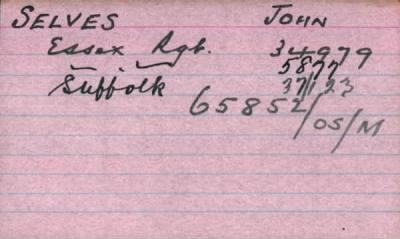 SELVES JOHN
Essex Rgt. 34979
5877
Suffolk 37123
65852/OS/M